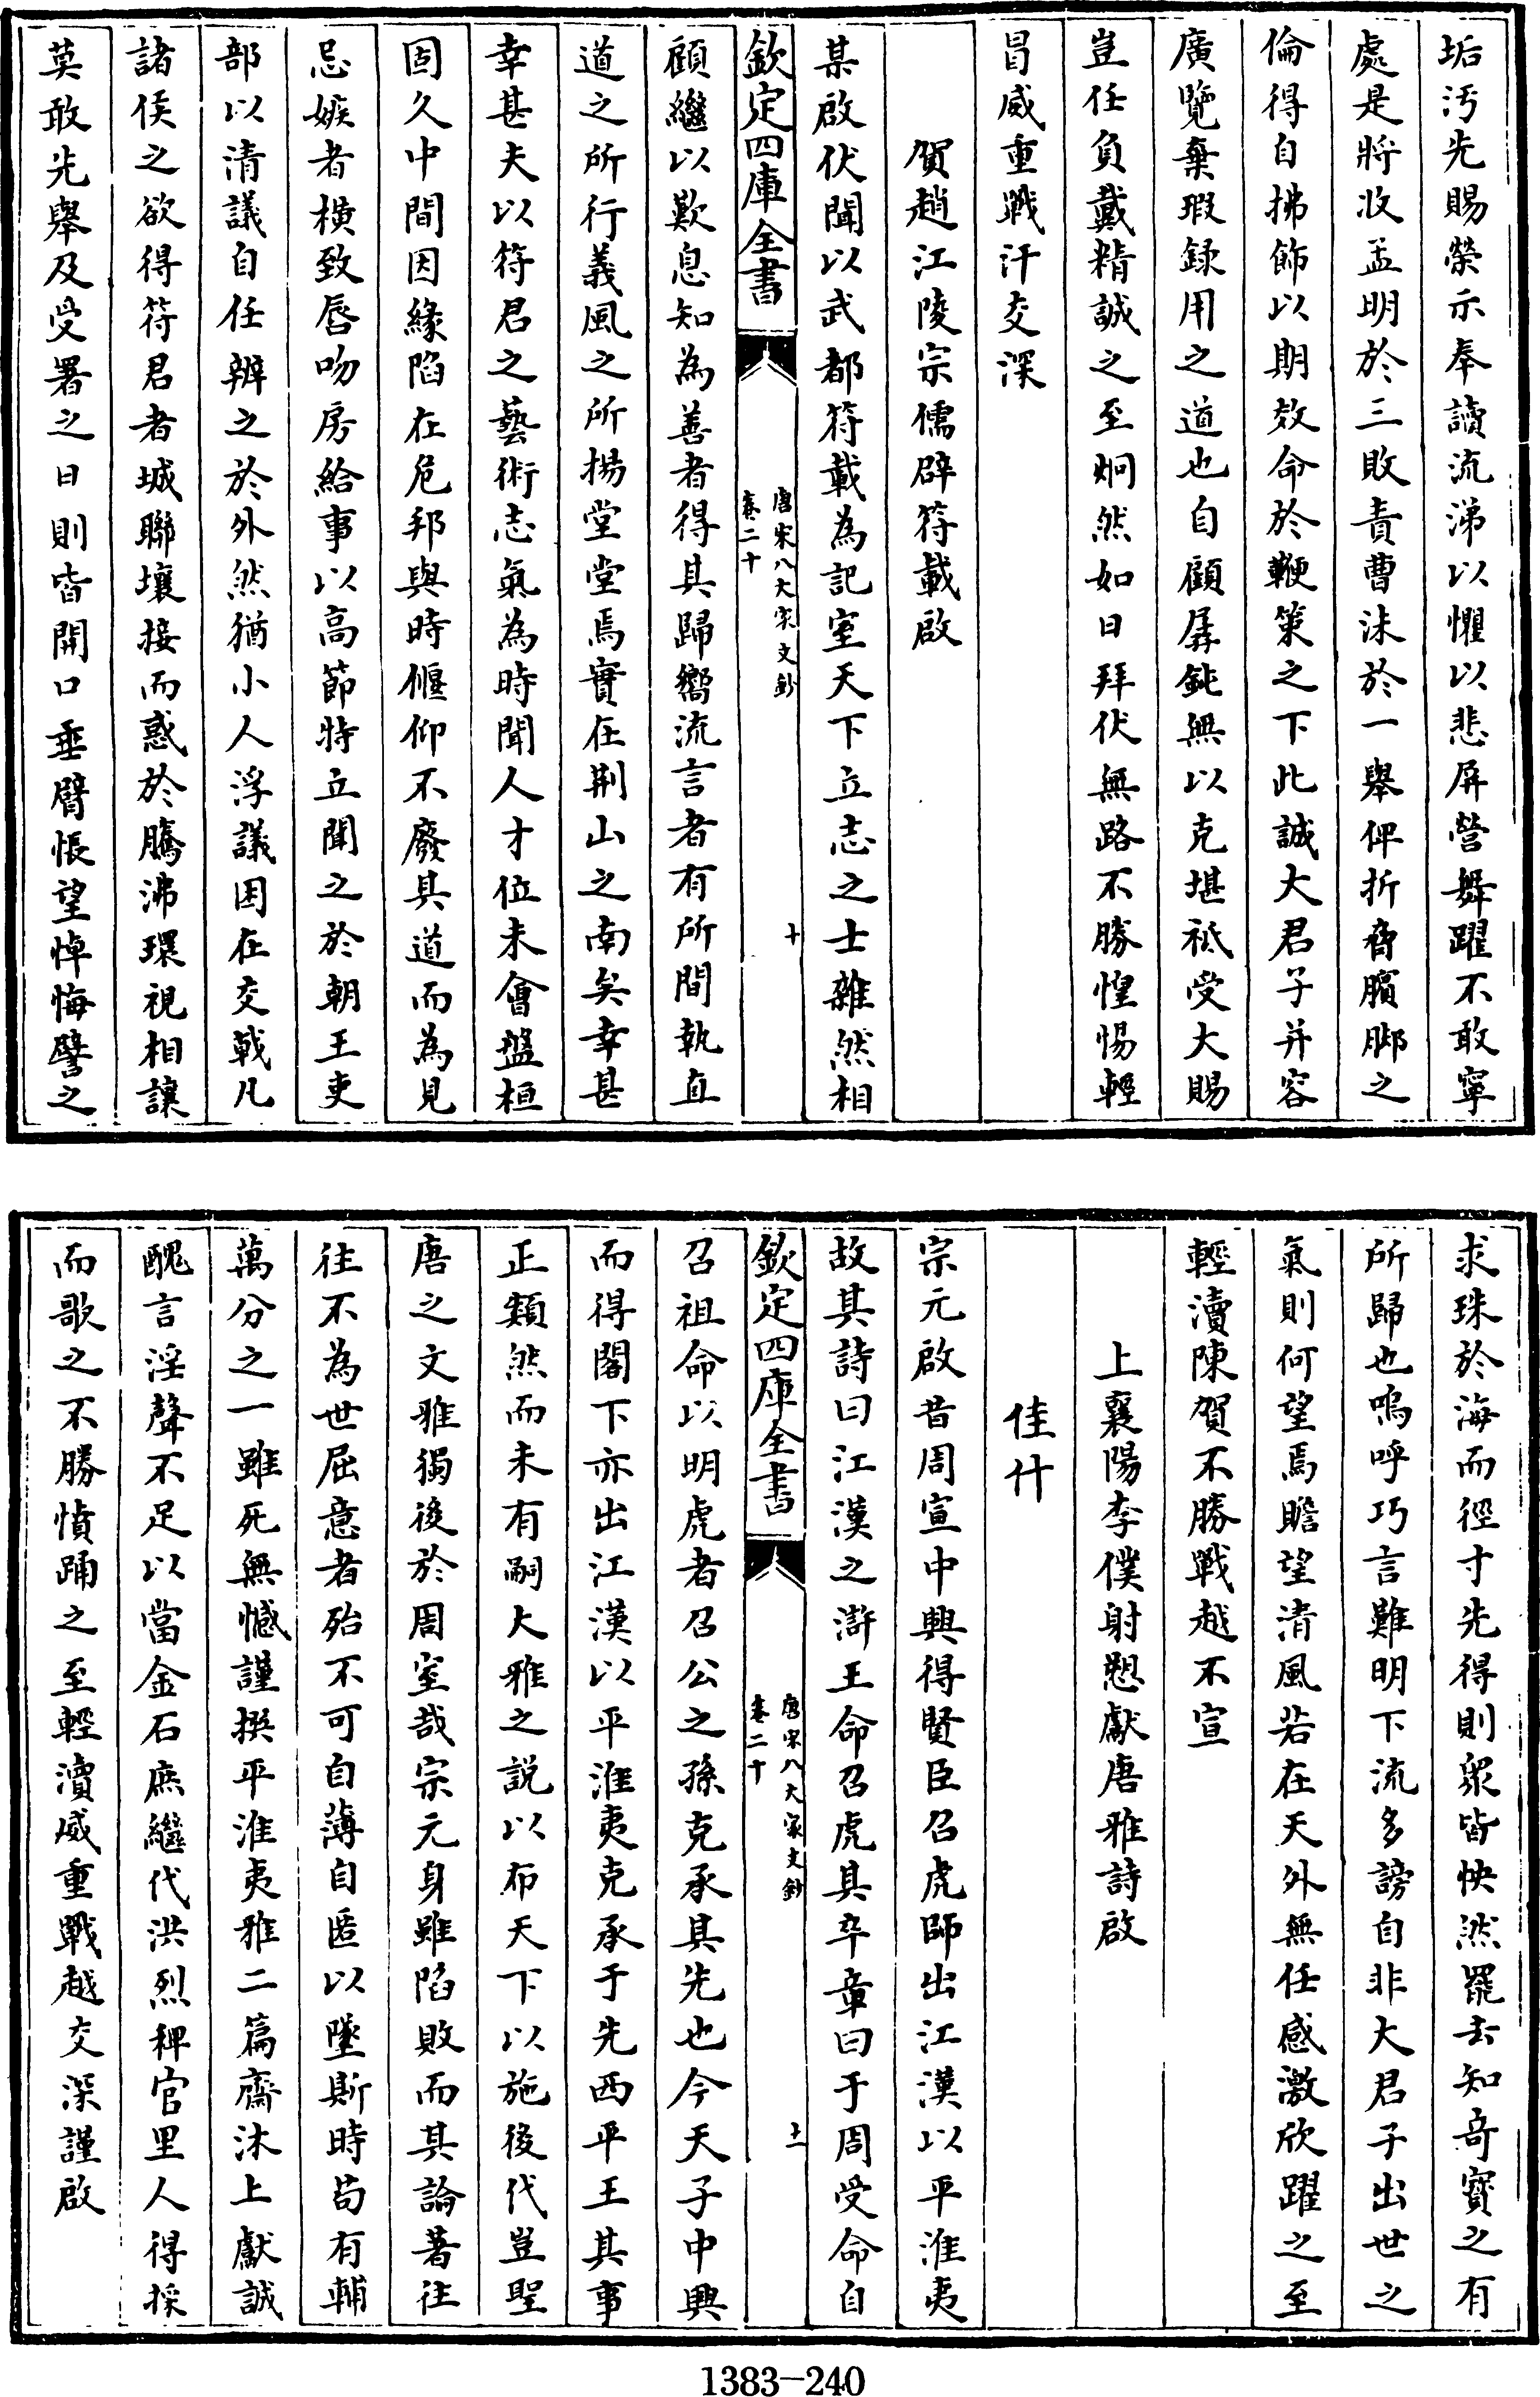 垢汚先賜榮示奉讀流涕以懼以悲屏營舞躍不敢寧
處是將收孟明於三敗責曹沫於一舉俾折脅臏脚之
倫得自拂飾以期效命於鞭策之下此誠大君子并容
廣覽棄瑕録用之道也自顧孱鈍無以克堪祗受大賜
豈任負戴精誠之至炯然如日拜伏無路不勝惶惕輕
冒威重戰汗交深
賀趙江陵宗儒辟符載啟
某啟伏聞以武都符載為記室天下立志之士雜然相
欽定四庫全書
唐宋八大家文鈔
卷二十
十
顧繼以歎息知為善者得其歸嚮流言者有所間執直
道之所行義風之所揚堂堂焉實在荆山之南矣幸甚
幸甚夫以符君之藝術志氣為時聞人才位未會盤桓
固久中間因緣陷在危邦與時偃仰不廢其道而為見
忌嫉者横致唇吻房給事以高節特立聞之於朝王吏
部以清議自任辨之於外然猶小人浮議困在交戟凡
諸侯之欲得符君者城聯壤接而惑於騰沸環視相讓
莫敢先舉及受署之日則皆開口垂臂悵望悼悔譬之
求珠於海而徑寸先得則衆皆怏然罷去知竒寶之有
所歸也嗚呼巧言難明下流多謗自非大君子出世之
氣則何望焉瞻望清風若在天外無任感激欣躍之至
輕瀆陳賀不勝戰越不宣
上襄陽李僕射愬獻唐雅詩啟
佳什
宗元啟昔周宣中興得賢臣召虎師出江漢以平淮夷
故其詩曰江漢之滸王命召虎其卒章曰于周受命自
欽定四庫全書
唐宋八大家文鈔
卷二十
十一
召祖命以明虎者召公之孫克承其先也今天子中興
而得閣下亦出江漢以平淮夷克承于先西平王其事
正類然而未有嗣大雅之説以布天下以施後代豈聖
唐之文雅獨後於周室哉宗元身雖陷敗而其論著往
往不為世屈意者殆不可自薄自匿以墜斯時茍有輔
萬分之一雖死無憾謹撰平淮夷雅二篇齋沐上獻誠
醜言淫聲不足以當金石庶繼代洪烈稗官里人得採
而歌之不勝憤踊之至輕瀆威重戰越交深謹啟
1383-240